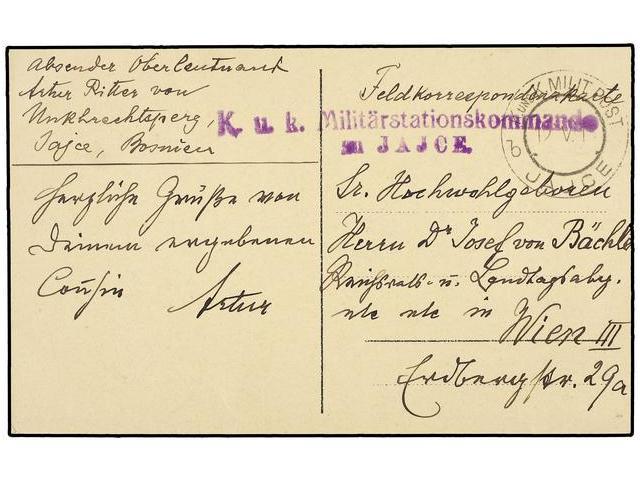 Absender Oberleutnant
Artur Ritter von
Jajce, Bosnien
Herzliche Grüße von
Deinem ergebenen
Cousin
Artur
Feldkorrespondenzkarte
K. u. k. Militärstationskommando
zu JAJCE.
K. UND K. MILIT. POST
JAJCE
Sr. Hochwohlgeboren
Herrn Dr Josef von Bächle
Reichsrats- u. Landtagsabg.
etc etc in
Wien III
Erdbergstr. 29a